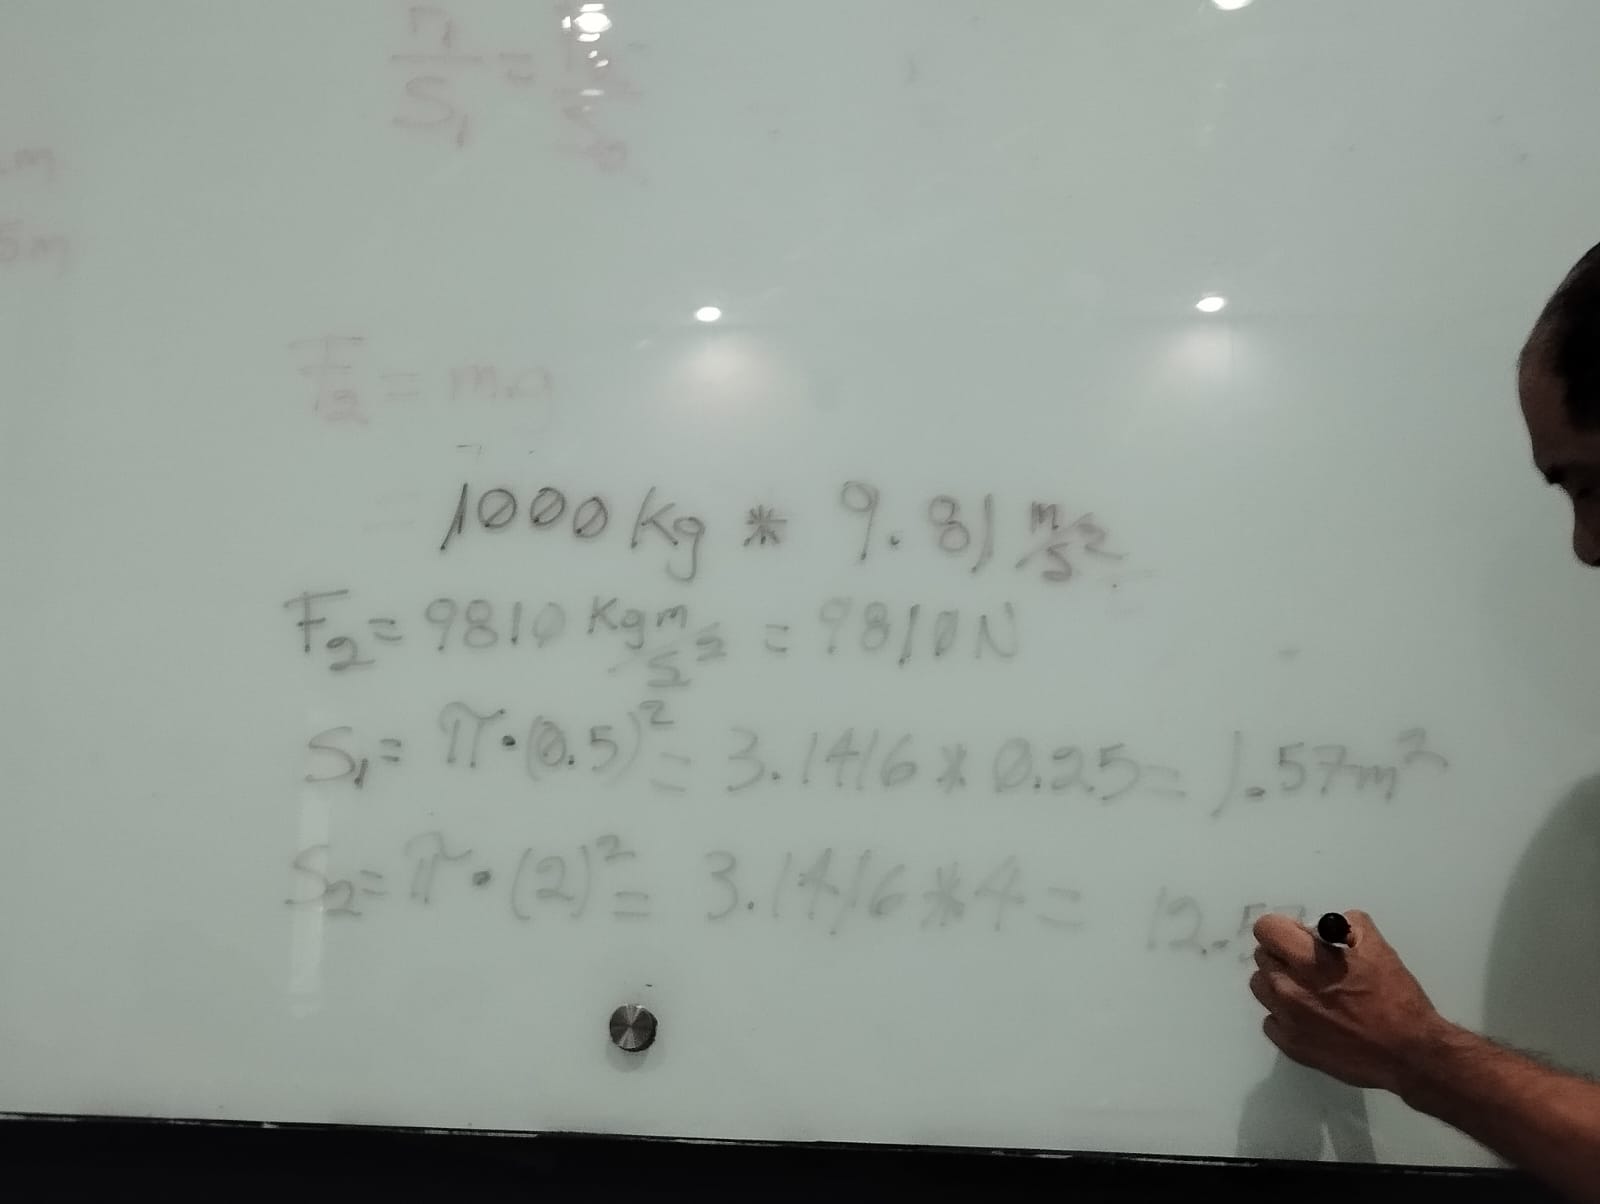 S₁ =
m
5m
F₂ = m.g
1000 Kg * 9.81 m/s²
F₂ = 9810 Kg m/s² = 9810 N
S₁ = π·(0.5)² = 3.1416 * 0.25 = 1.57 m²
S₂ = π·(2)² = 3.1416 * 4 = 12.5